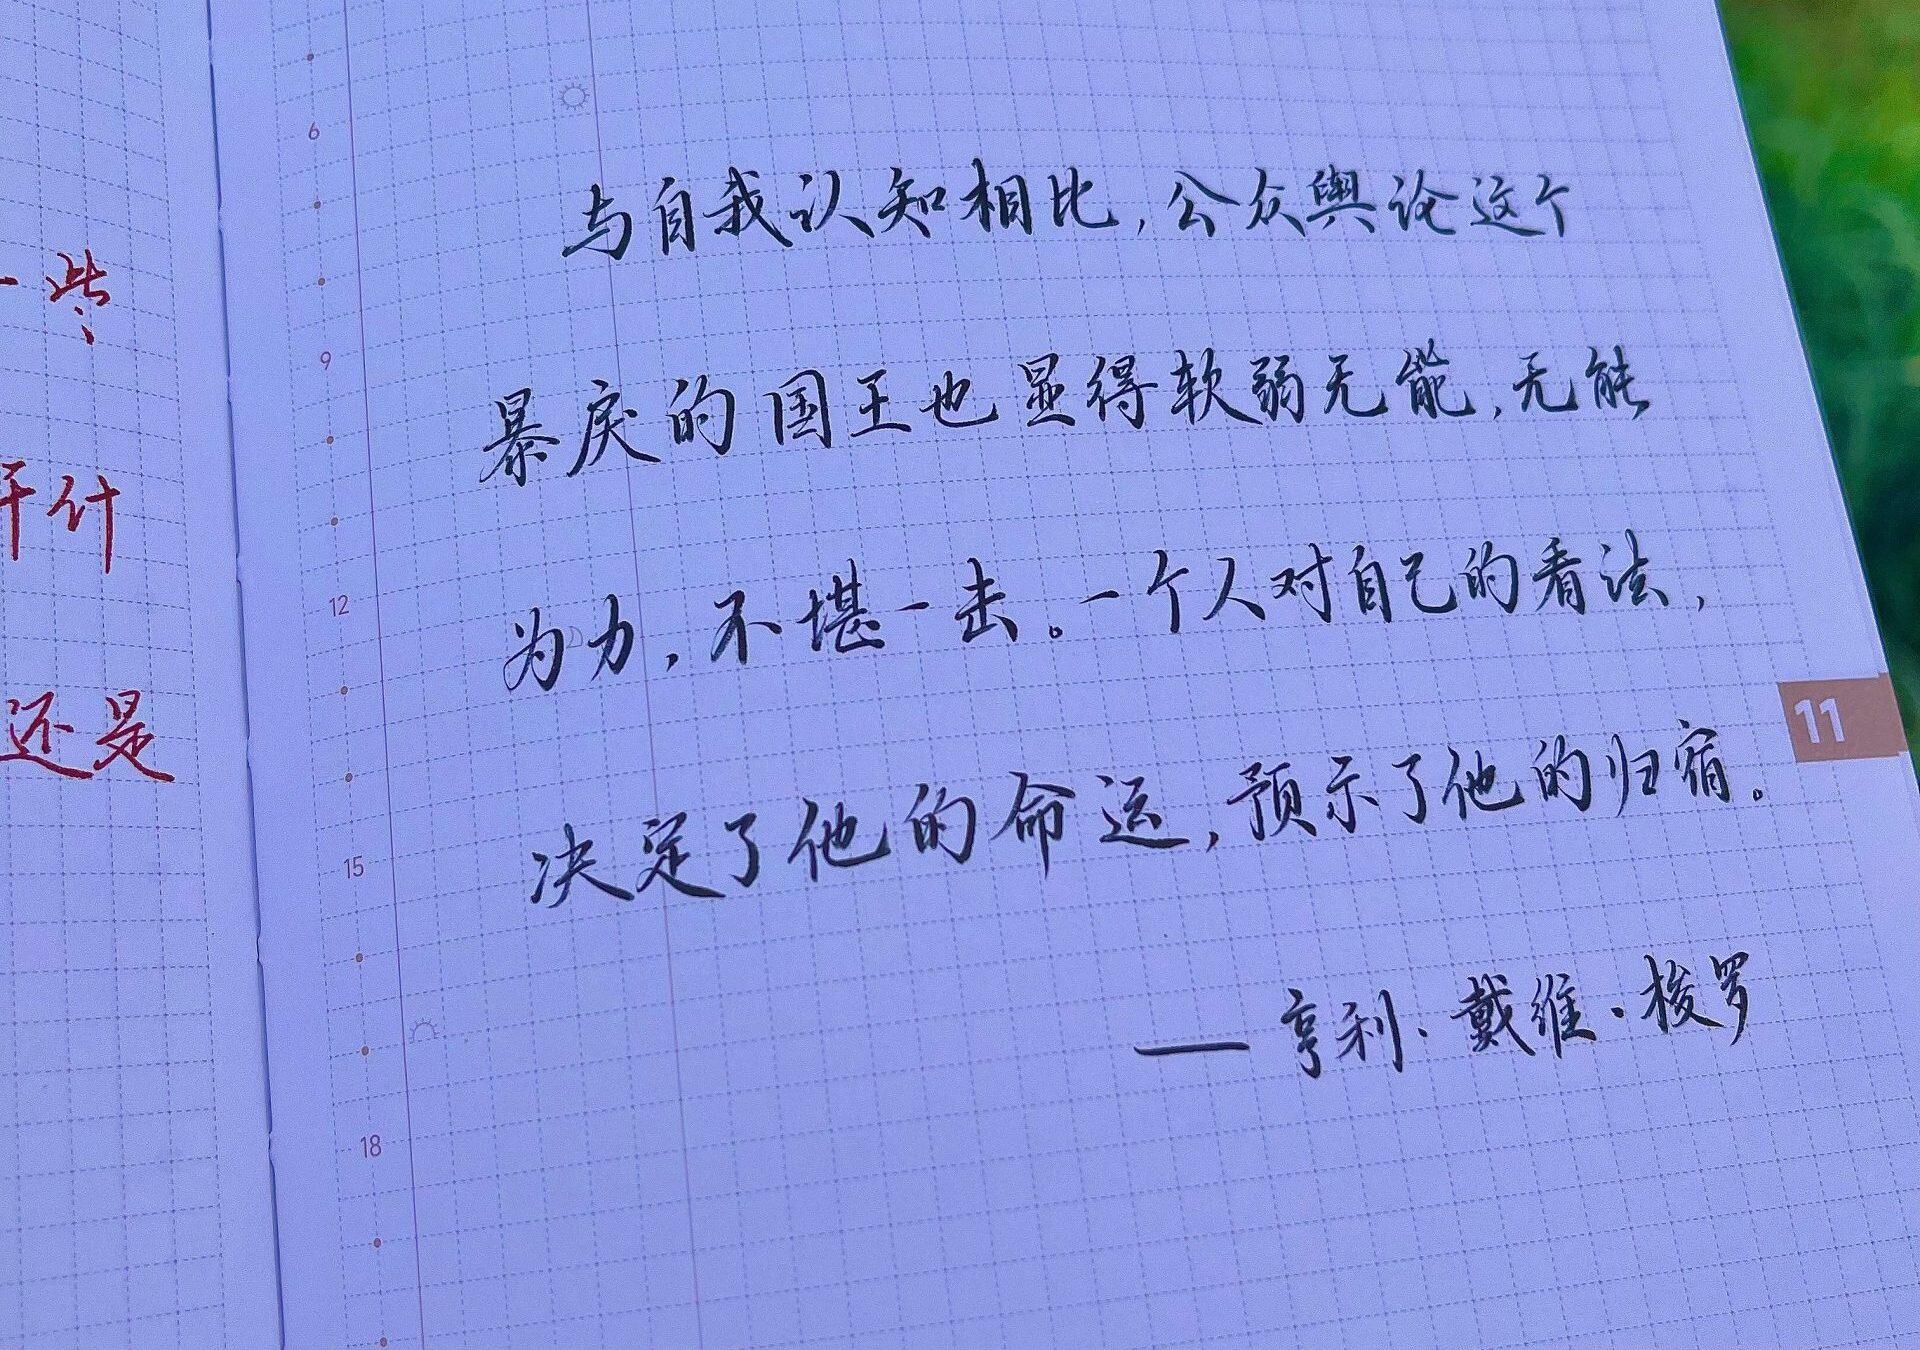 一些
干什
还是
6
9
12
15
18
与自我认知相比,公众舆论这个
暴戾的国王也显得软弱无能,无能
为力,不堪一击。一个人对自己的看法,
决定了他的命运,预示了他的归宿。
——亨利·戴维·梭罗
11